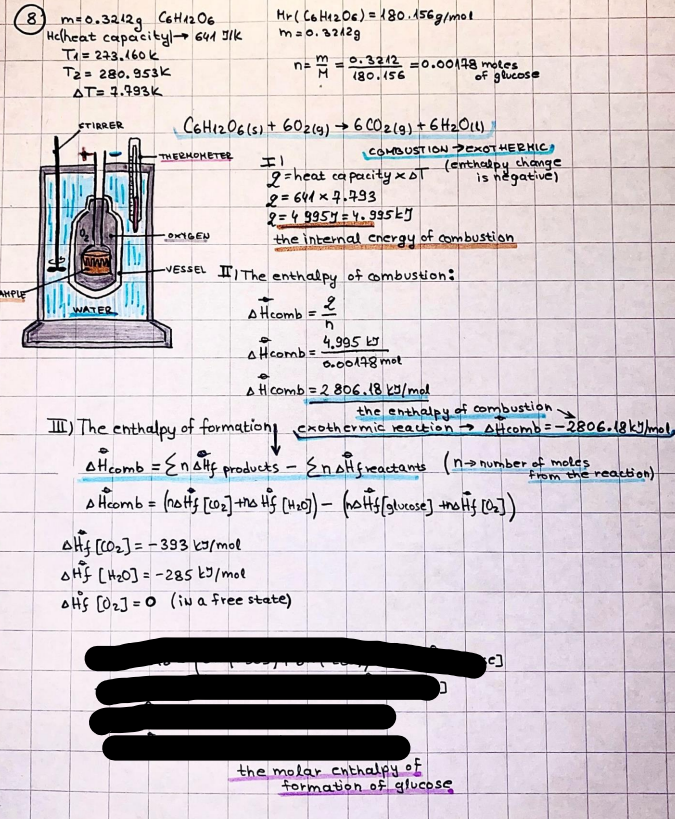 8 m=0.3212g C6H12O6
Hc(heat capacity)→ 641 J/K
T1 = 273.160K
T2 = 280.953K
ΔT= 7.793K
Mr(C6H12O6) = 180.156g/mol
m=0.3212g
n = m/M = 0.3212/180.156 = 0.00178 moles of glucose
C6H12O6(s) + 6O2(g) → 6CO2(g) + 6H2O(l)
COMBUSTION → EXOTHERMIC
(enthalpy change
is negative)
STIRRER
- +
THERMOMETER
O2
OXYGEN
VESSEL
AMPLE
WATER
I)
q = heat capacity × ΔT
q = 641 × 7.793
q = 4 995J = 4.995kJ
the internal energy of combustion
II) The enthalpy of combustion:
ΔH⦵comb = q/n
ΔH⦵comb = 4.995 kJ/0.00178 mol
ΔH⦵comb = 2 806.18 kJ/mol
the enthalpy of combustion
exothermic reaction → ΔH⦵comb = -2806.18kJ/mol
III) The enthalpy of formation
ΔH⦵comb = ∑ n ΔH⦵f products - ∑ n ΔH⦵f reactants (n→number of moles
from the reaction)
ΔH⦵comb = (nΔH⦵f [CO2]+nΔH⦵f [H2O]) - (nΔH⦵f[glucose] +nΔH⦵f [O2])
ΔH⦵f [CO2] = -393 kJ/mol
ΔH⦵f [H2O] = -285 kJ/mol
ΔH⦵f [O2] = 0 (in a free state)
the molar enthalpy of
formation of glucose